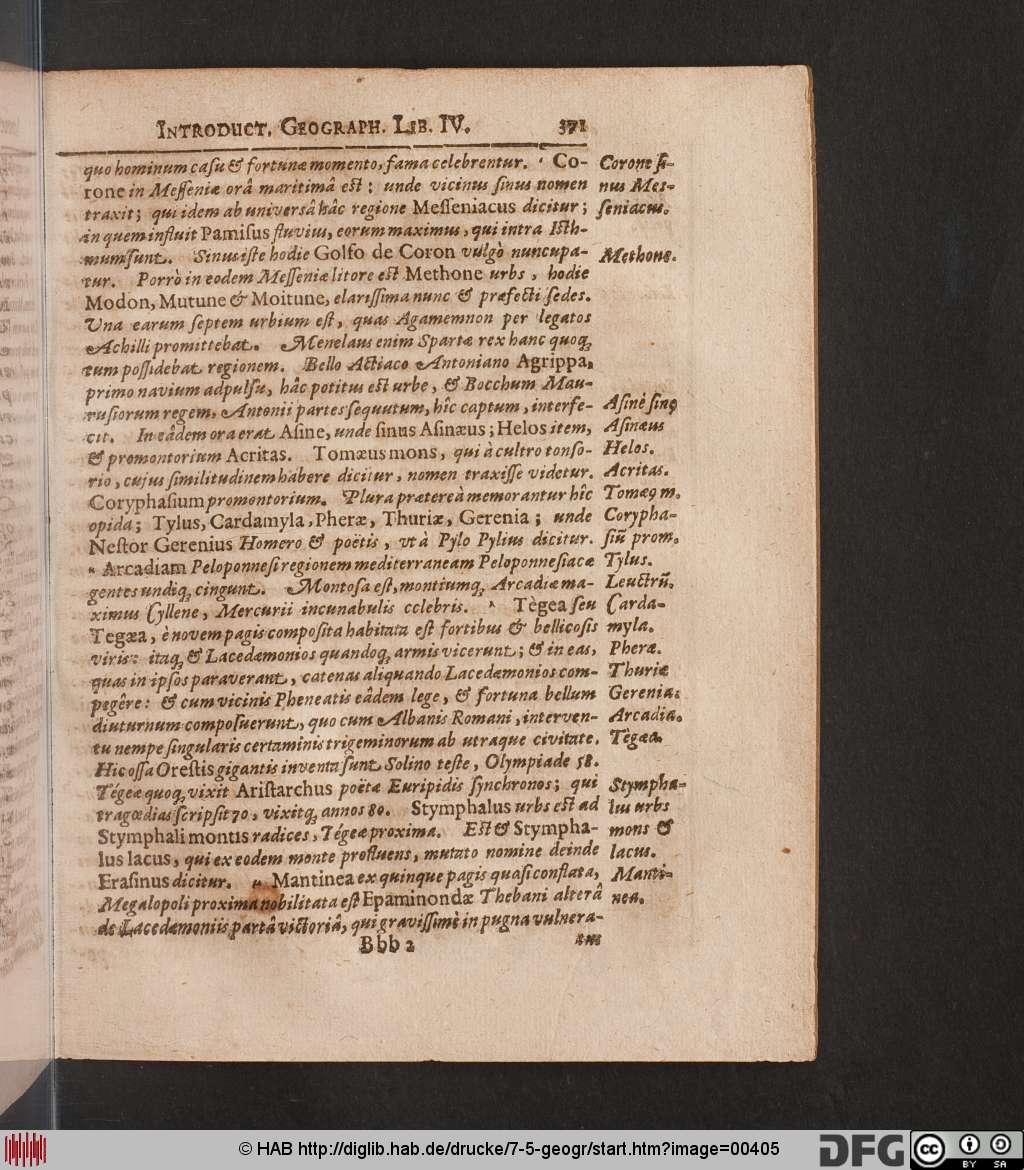 INTRODUCT. GEOGRAPH. LIB. IV. 371
quo hominum caſu & fortunæ momento, fama celebrentur. Co-
rone in Meſſeniæ orâ maritimâ est: unde vicinus ſinus nomen
traxit; qui idem ab universâ hâc regione Meſſeniacus dicitur;
in quem influit Pamiſus fluvius, eorum maximus, qui intra Isth-
mum ſunt. Sinus iſte hodie Golfo de Coron vulgò nuncupa-
tur. Porrò in eodem Meſſeniæ litore est Methone urbs, hodie
Modon, Mutune & Moitune, clarissima nunc & præfecti ſedes.
Una earum ſeptem urbium eſt, quas Agamemnon per legatos
Achilli promittebat. Menelaus enim Spartæ rex hanc quoq;
tum poſſidebat regionem. Bello Actiaco Antoniano Agrippa,
primo navium adpulſu, hâc potitus est urbe, & Bocchum Mau-
ruſiorum regem, Antonii partes ſequutum, hîc captum, interfe-
cit. In eâdem ora erat Aſine, unde ſinus Aſinæus; Helos item,
& promontorium Acritas. Tomæus mons, qui à cultro tonſo-
rio, cujus ſimilitudinem habere dicitur, nomen traxiſſe videtur.
Coryphaſium promontorium. Plura prætereà memorantur hîc
opida; Tylus, Cardamyla, Pheræ, Thuriæ, Gerenia; unde
Neſtor Gerenius Homero & poëtis, vt à Pylo Pylius dicitur.
Arcadiam Peloponneſi regionem mediterraneam Peloponneſiacæ
gentes undiq; cingunt. Montoſa eſt, montiumq; Arcadiæ ma-
ximus Cyllene, Mercurii incunabulis celebris. Tègea ſeu
Tegæa, è novem pagis compoſita habitata eſt fortibus & bellicoſis
viris: itaq; & Lacedæmonios quandoq; armis vicerunt; & in eas,
quas in ipſos paraverant, catenas aliquando Lacedæmonios com-
pegêre: & cum vicinis Pheneatis eâdem lege, & fortuna bellum
diuturnum compoſuerunt, quo cum Albanis Romani, interven-
tu nempe ſingularis certaminis trigeminorum ab utraque civitate.
Hic oſſa Oreſtis gigantis inventa ſunt Solino teſte, Olympiade 58.
Tégeæ quoq; vixit Ariſtarchus poëta Euripidis ſynchronos; qui
tragœdias ſcripſit 70, vixitq; annos 80. Stymphalus urbs eſt ad
Stymphali montis radices, Tégeæ proxima. Est & Stympha-
lus lacus, qui ex eodem monte profluens, mutato nomine deinde
Eraſinus dicitur. Mantinea ex quinque pagis quaſi conflata,
Megalopoli proxima nobilitata eſt Epaminondæ Thebani alterâ
de Lacedæmoniis partâ victoriâ, qui graviſſimè in pugna vulnera-
Bbb 2
tus
Corone ſi-
nus Meſ-
ſeniacus.
Methone.
Aſinè ſinꝰ
Aſinæus
Helos.
Acritas.
Tomæꝰ m.
Corypha-
ſiũ prom.
Tylus.
Leuctrũ.
Carda-
myla.
Pheræ.
Thuriæ
Gerenia.
Arcadia.
Tègæa.
Stympha-
lus urbs
mons &
lacus.
Manti-
nea.
© HAB http://diglib.hab.de/drucke/7-5-geogr/start.htm?image=00405
DFG
cc BY SA